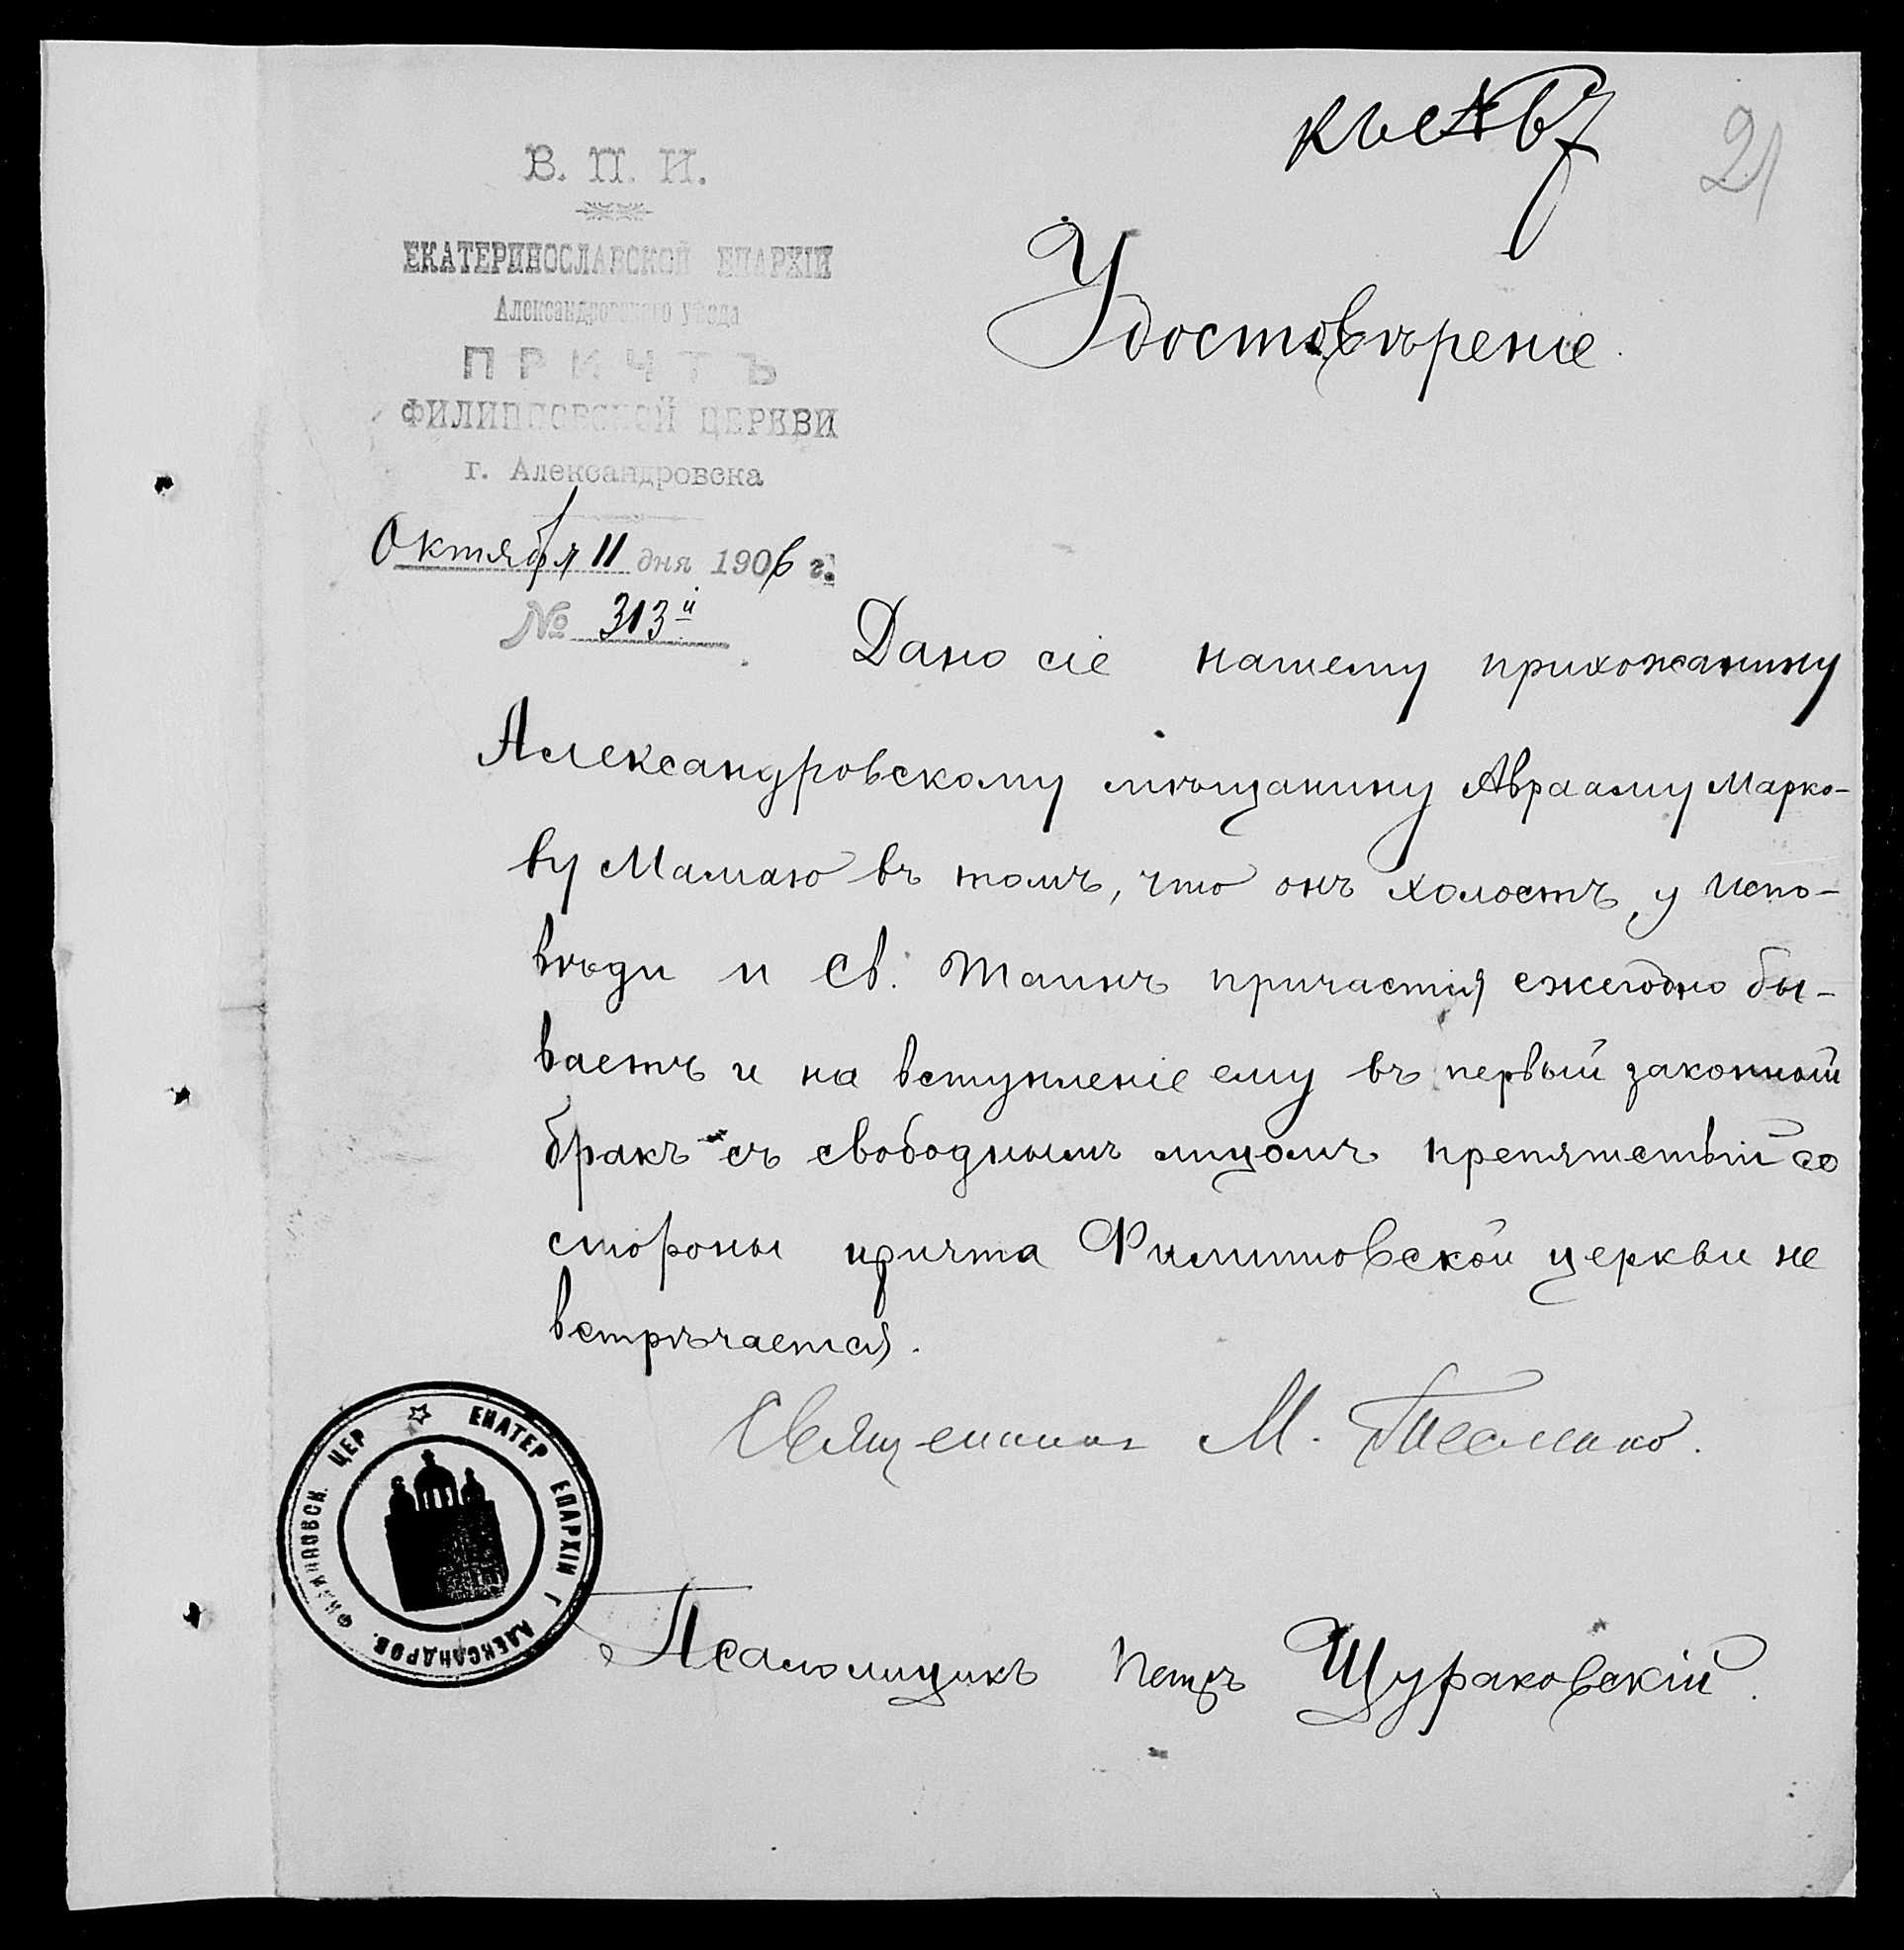 21
В. П. И.
ЕКАТЕРИНОСЛАВСКОЙ ЕПАРХІИ
Александровскаго уѣзда
ПРИЧТЪ
ФИЛИППОВСКОЙ ЦЕРКВИ
г. Александровска
Октября 11 дня 1906 г.
№ 313й
Удостовѣреніе.
Дано сіе нашему прихожанину
Александровскому мѣщанину Аврааму Марко-
ву Мамаю въ томъ, что онъ холостъ, у испо-
вѣди и Св. Таинъ причастія ежегодно бы-
ваетъ и на вступленіе ему въ первый законный
бракъ съ свободнымъ лицомъ препятствій со
стороны причта Филипповской церкви не
встрѣчается.
Священникъ М.
Псаломщикъ Петръ Щураковскій.
ЕКАТЕР ЕПАРХІИ Г АЛЕКСАНДРОВ. ФИЛИППОВСК. ЦЕР